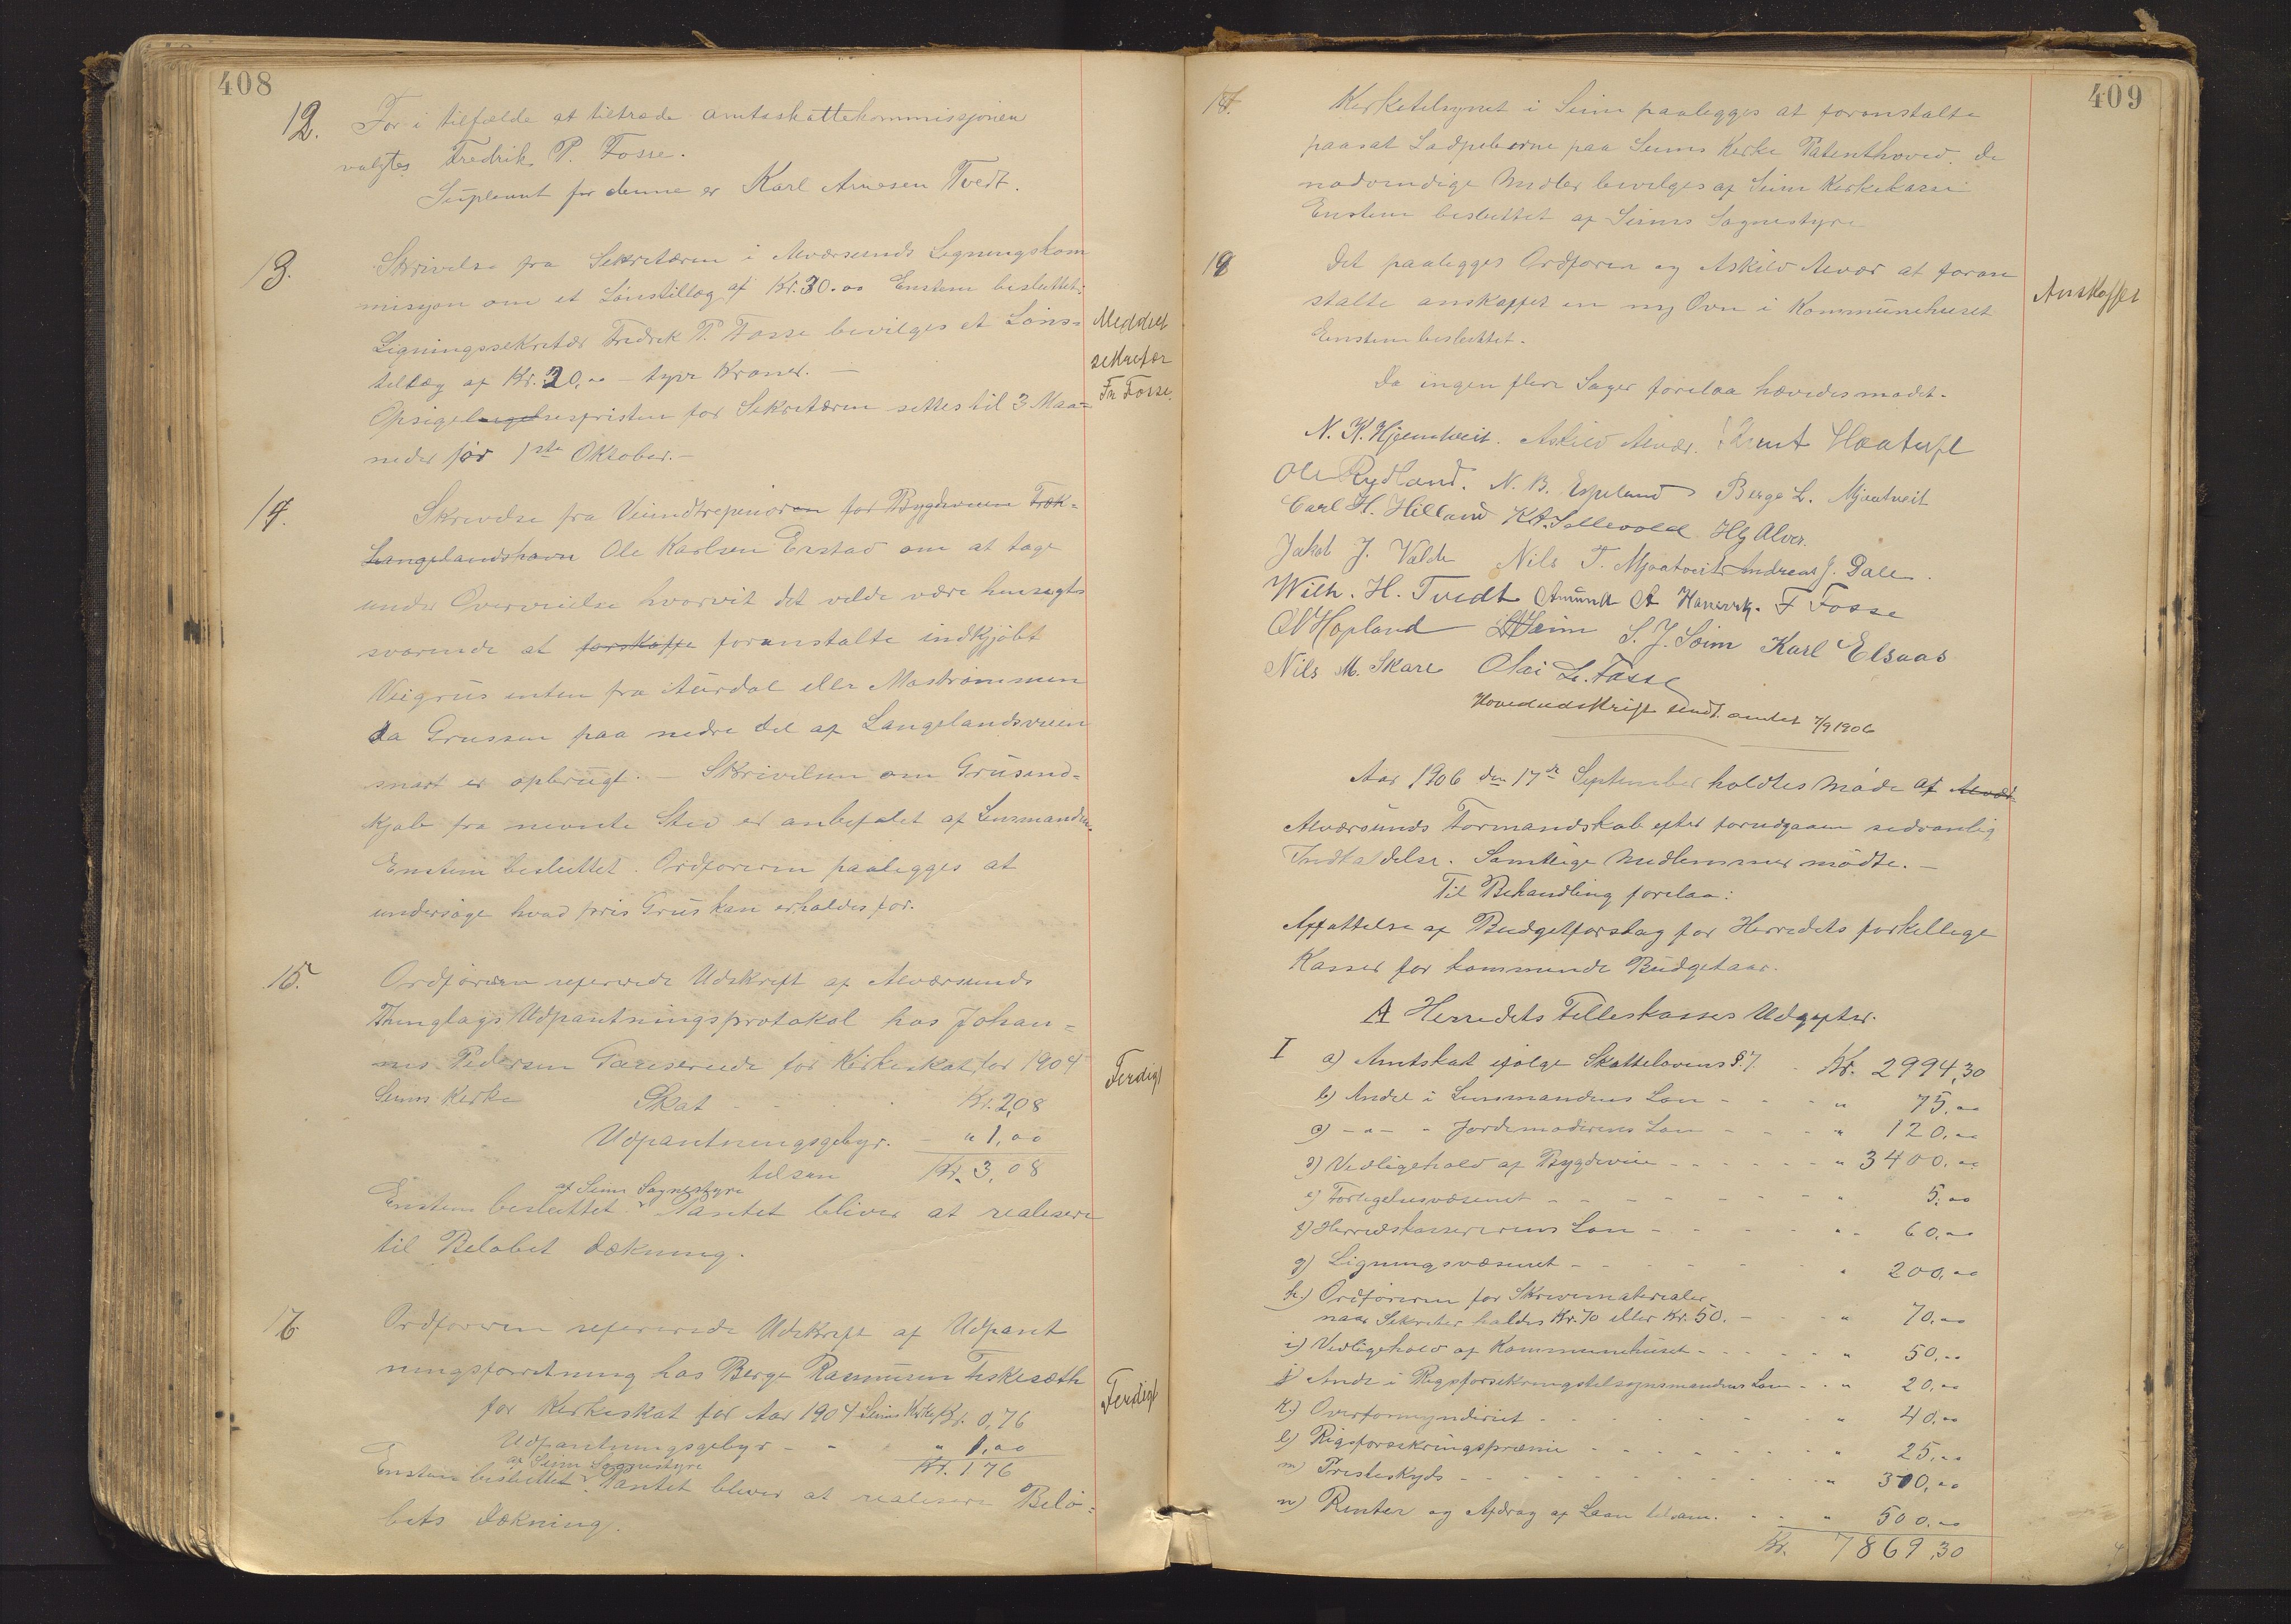 408
12. For i tilfælde at tiltræde amtsskattekommissjonen
valgtes Fredrik P. Fosse.
Supleant for denne er Karl Arnesen Tvedt.
13. Skrivelse fra Sekretæren i Alværsunds Ligningskom
misjon om et Lønstillæg af Kr. 30.00 Enstem besluttet:
Ligningssekretær Fredrik P. Fosse bevilges et Løns=
tillæg af Kr. 20,00 – tyve Kroner. –
Opsigelsesfristen for Sekretæren settes til 3 Maa=
neder før 1ste Oktober. –
Meddelt
sekretær
Fr Fosse.
14. Skrivelse fra Veientreprenøren for Bygdeveien Fræk=
Langelandshavn Ole Karlsen Erstad om at tage
under Overveielse hvorvit det vilde være hensigts
svarende at forskaffe foranstalte indkjøbt
Veigrus enten fra Aurdal eller Mastrømmen
da Grussen paa nedre del af Langelandsveien
snart er opbrugt. – Skrivelsen om Grusind=
kjøb fra nevnte Sted er anbefalet af Lensmanden.
Enstem besluttet. Ordføreren paalegges at
undersøge hvad pris Grus kan erholdes for.
15. Ordføreren refererede Udskrift af Alværsunds
Thinglags Udpantningsprotokol hos Johan=
nes Pedersen for Kirkeskat for 1904
Seims Kirke Skat Kr. 2,08
Udpantningsgebyr. – " 1,00
tilsam Kr. 3,08
af Seim Sognestyre
Enstem besluttet. Pantet bliver at realisere
til Beløbet dækning.
Ferdigt
16 Ordføreren refererede Udskrift af Udpant
ningsforretning hos Berge Rasmusen Fiskesæth
for Kirkeskat for Aar 1904 Seims Kirke Kr. 0,76
Udpantningsgebyr – - " 1,00
af Seim Sognestyre Kr. 1 76
Enstem besluttet. Pantet bliver at realisere Belø=
bets dækning.
Ferdigt
409
Kirketilsynet i Seim paalegges at foranstalte
paasat Ladpiberne paa Seims Kirke Patenthoved. De
nødvendige Midler bevilges af Seim Kirkekasse
Enstem besluttet af Seims Sognestyre
18 Det paalegges Ordføren og Askild Alvær at foran
stalte anskaffet en ny Ovn i Kommunehuset
Enstem besluttet.
Anskaffet
Da ingen flere Sager forelaa hævedes mødet.
N. K. Hjelmtveit. Askild Alvær. Knut
Ole Rydland. N. B. Espeland Berge L. Mjaatveit
Carl H. Hilland K A. Sellevold Hg Alver.
Jakob J. Valde Nils T. Mjaatveit Andreas J. Dale.
Wilh. H. Tvedt Amund A F Fosse
O N Hopland Seim S. J. Soim Karl Elsaas
Nils M. Skare Olai L. Fosse
Hovedudskrift sendt amtet 7/9 1906
Aar 1906 den 17de September holdtes Møde af Alvær
Alværsunds Formandskab efter forudgaaen sedvanlig
Indkaldelse. Samtlige Medlemmer mødte. –
Til Behandling forelaa:
Affattelse af Budgetforslag for Herredets forkellige
Kasser for kommende Budgetaar.
A Herredets Felleskasses Udgifter.
I a) Amtskat ifølge Skattelovens § 7. - Kr. 2994,30
b) Andel i Lensmandens Løn - - - " 75,00
c) – " – - Jordemoderens Løn - - - " 120,00
d) Vedligehold af Bygdeveie - - - - " 3400,00
e) Forligelsesvæsenet - - - - - " 5,00
f) Herredskassererens Løn - - - " - 60,00
g) Ligningsvæsenet - - - - - " 200,00
h.) Ordføreren for Skrivematerialer
naar Sekretær holdes Kr. 70 eller Kr. 50. - - " 70,00
i) Vedligehold af Kommunehuset - - - - " 50,00
j) Andel i Rigsforsekringstilsynsmandens Løn - - " 20,00
k.) Overformynderiet - - - - - " 40,00
l) Rigsforsekringspræmie - - - - " 25,00
m) Presteskyds - - - - - - " 300,00
n) Renter og Afdrag af Laan tilsam. - - " 500,00
Kr. 7869,30